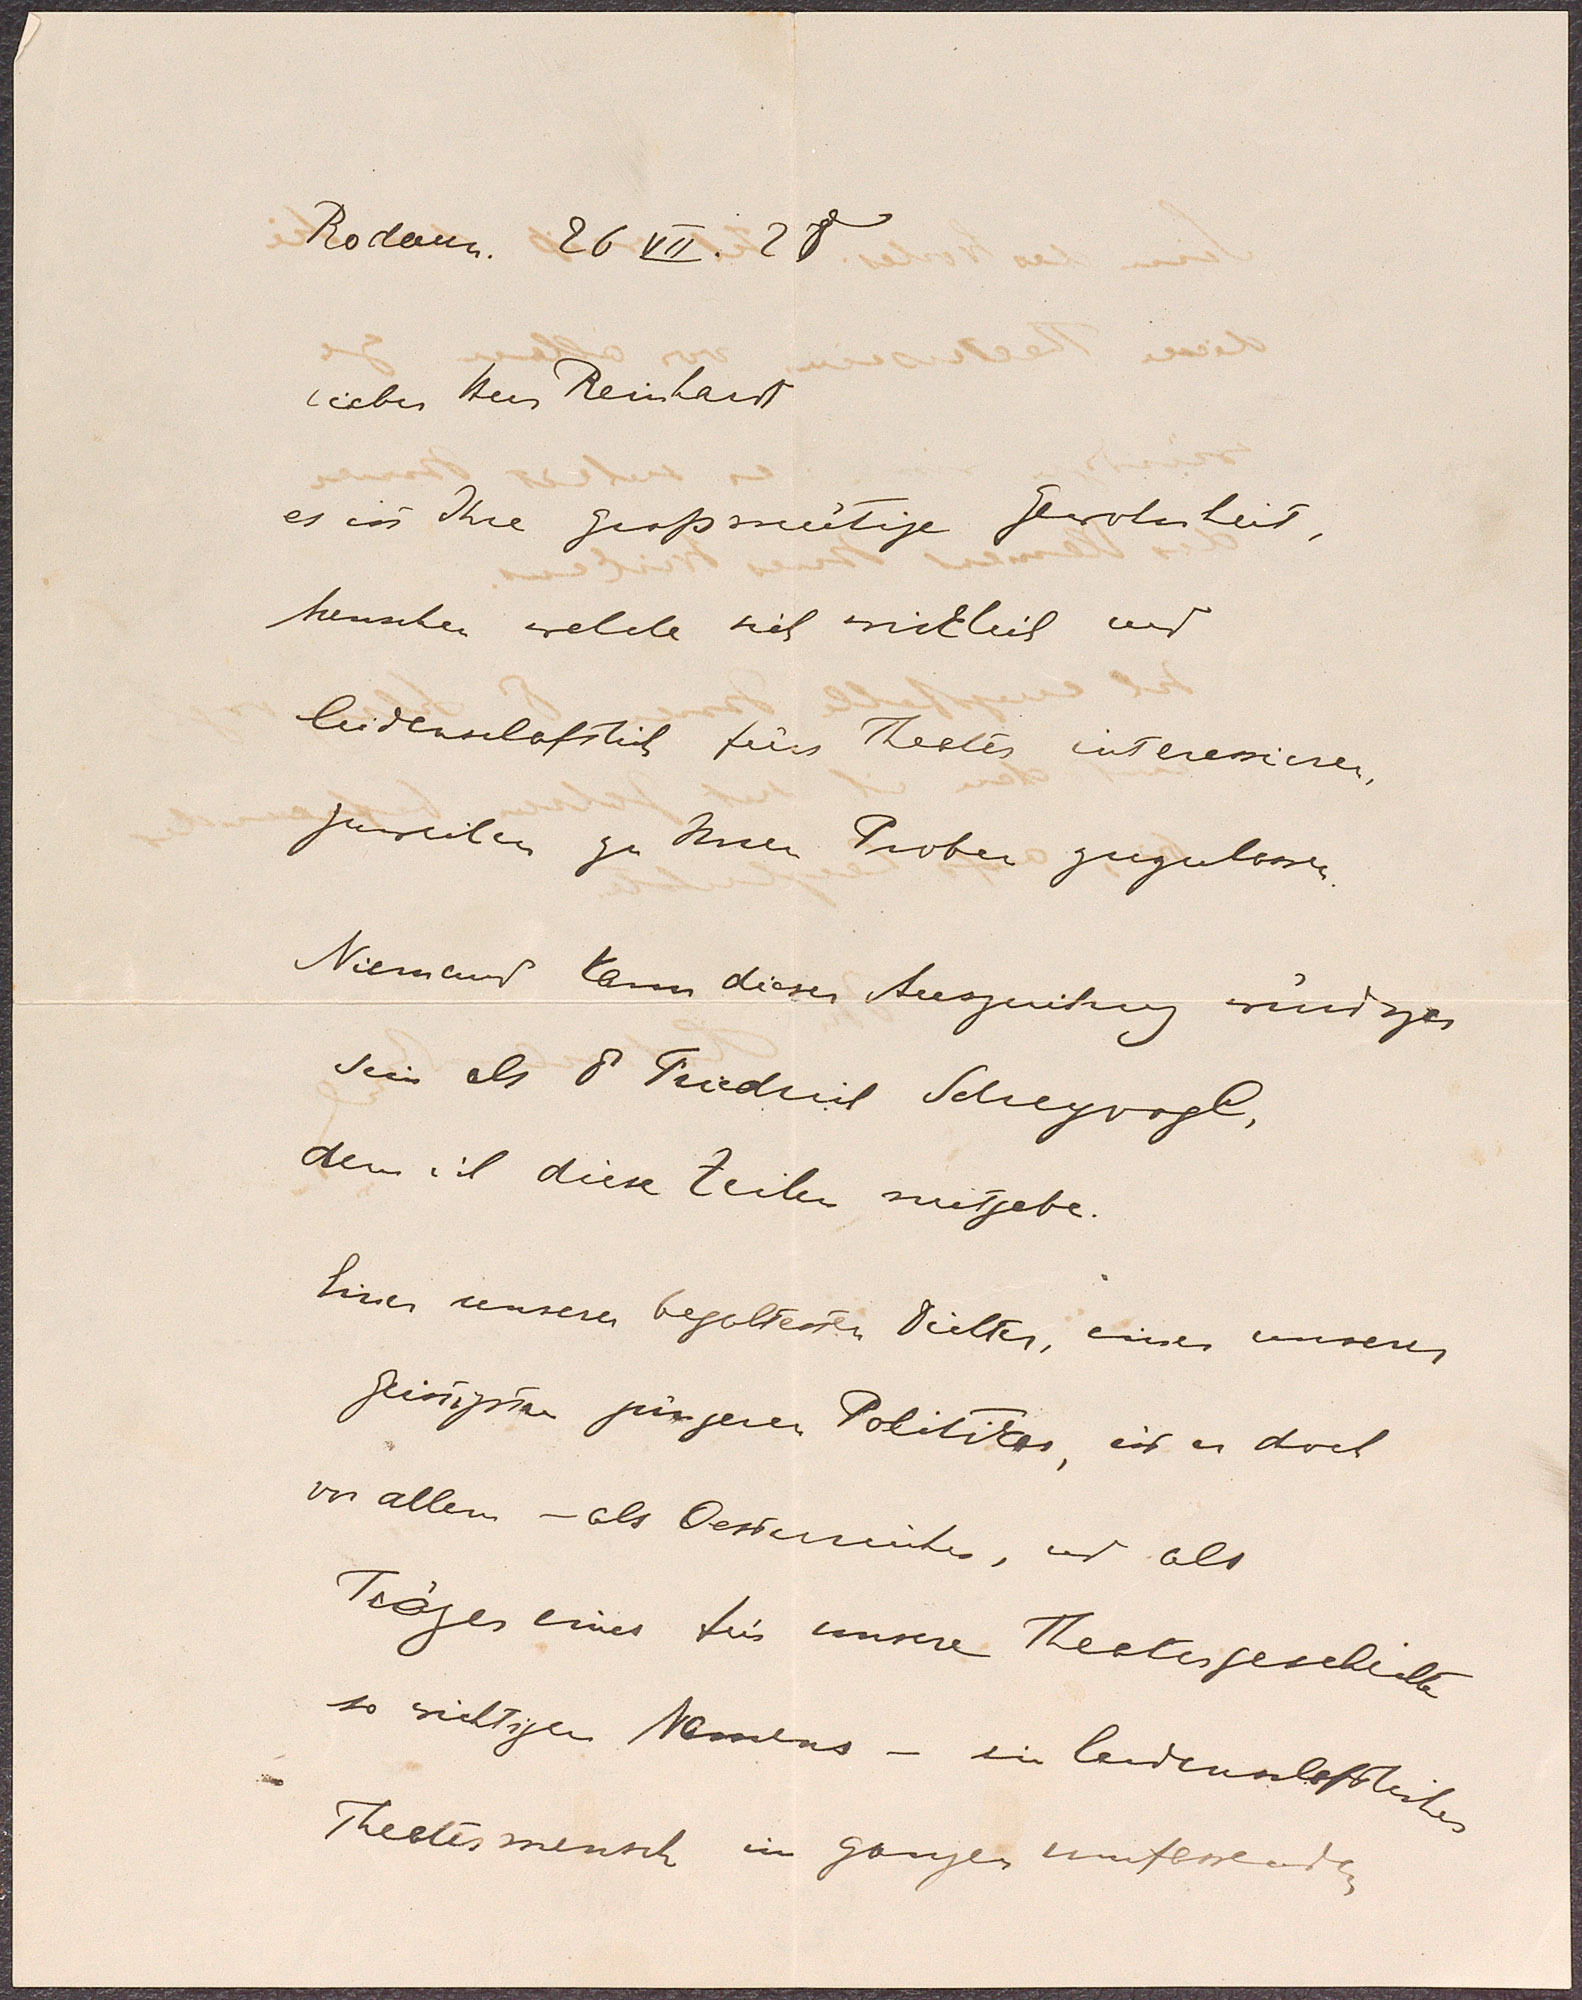 Rodaun. 26 VII. 28
Lieber Herr Reinhardt
es ist Ihre großmütige Gewohnheit,
Menschen welche sich wirklich und
leidenschaftlich fürs Theater interessieren,
zuweilen zu Ihren Proben zuzulassen.
Niemand kann dieser Auszeichnung würdiger
sein als Dr Friedrich Schreyvogl,
dem ich diese Zeilen mitgebe.
Einer unserer begabtesten Dichter, einer unserer
geistigsten jüngeren Politiker, ist er doch
vor allem – als Oesterreicher, und als
Träger eines für unsere Theatergeschichte
so wichtigen Namens – ein leidenschaftlicher
Theatermensch im ganzen umfassenden